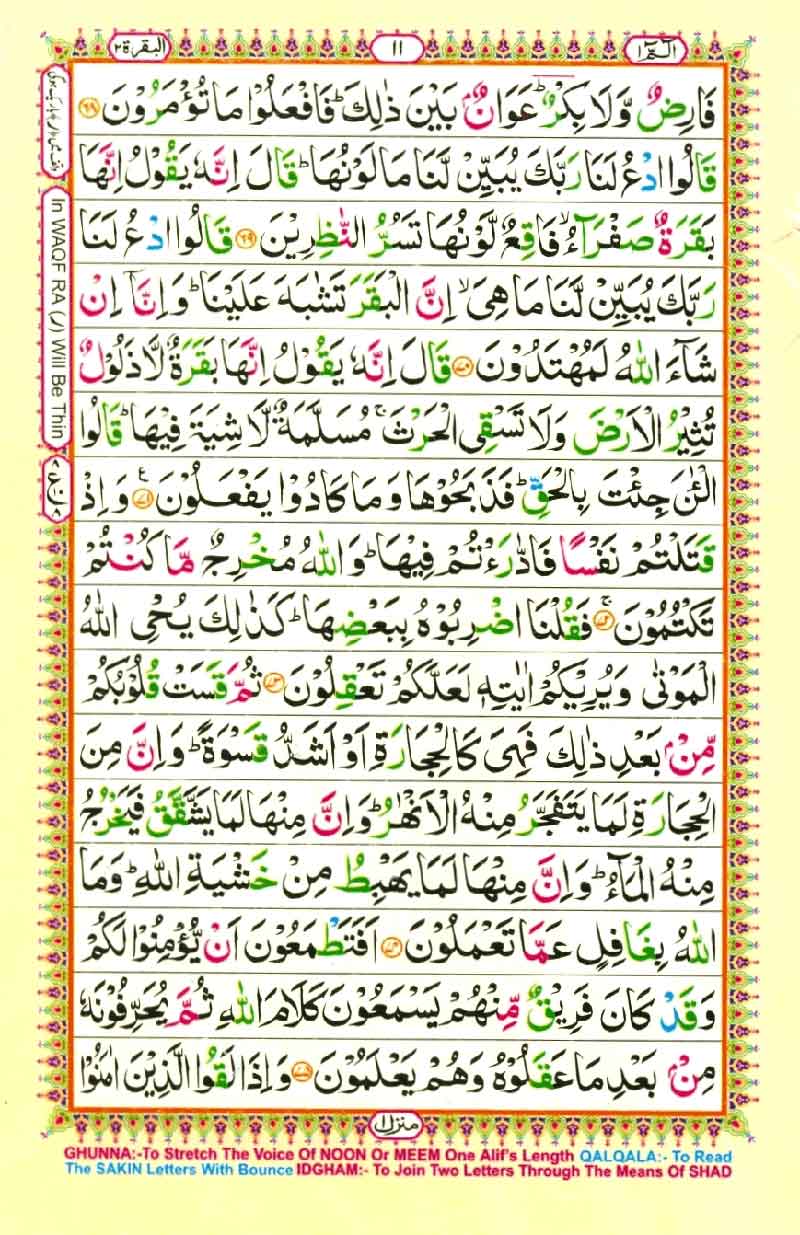 البقرة ٢
١١
الٓمّٓ ١
فَارِضٌ وَّلَا بِكْرٌ ؕ عَوَانٌۢ بَيْنَ ذٰلِكَ ؕ فَافْعَلُوْا مَا تُؤْمَرُوْنَ ﴿۶۸﴾
قَالُوا ادْعُ لَنَا رَبَّكَ يُبَيِّنْ لَّنَا مَا لَوْنُهَا ؕ قَالَ اِنَّهٗ يَقُوْلُ اِنَّهَا
بَقَرَةٌ صَفْرَآءُ ۙ فَاقِعٌ لَّوْنُهَا تَسُرُّ النّٰظِرِيْنَ ﴿۶۹﴾ قَالُوا ادْعُ لَنَا
رَبَّكَ يُبَيِّنْ لَّنَا مَا هِىَ ۙ اِنَّ الْبَقَرَ تَشٰبَهَ عَلَيْنَا ؕ وَاِنَّاۤ اِنْ
شَآءَ اللّٰهُ لَمُهْتَدُوْنَ ﴿۷۰﴾ قَالَ اِنَّهٗ يَقُوْلُ اِنَّهَا بَقَرَةٌ لَّا ذَلُوْلٌ
تُثِيْرُ الْاَرْضَ وَلَا تَسْقِى الْحَرْثَ ۚ مُسَلَّمَةٌ لَّا شِيَةَ فِيْهَا ؕ قَالُوا
الْـٰٔنَ جِئْتَ بِالْحَقِّ ؕ فَذَبَحُوْهَا وَمَا كَادُوْا يَفْعَلُوْنَ ﴿۷۱﴾ ع وَاِذْ
قَتَلْتُمْ نَفْسًا فَادّٰرَءْتُمْ فِيْهَا ؕ وَاللّٰهُ مُخْرِجٌ مَّا كُنْتُمْ
تَكْتُمُوْنَ ﴿۷۲﴾ ۚ فَقُلْنَا اضْرِبُوْهُ بِبَعْضِهَا ؕ كَذٰلِكَ يُحْىِ اللّٰهُ
الْمَوْتٰى وَيُرِيْكُمْ اٰيٰتِهٖ لَعَلَّكُمْ تَعْقِلُوْنَ ﴿۷۳﴾ ثُمَّ قَسَتْ قُلُوْبُكُمْ
مِّنْۢ بَعْدِ ذٰلِكَ فَهِىَ كَالْحِجَارَةِ اَوْ اَشَدُّ قَسْوَةً ؕ وَاِنَّ مِنَ
الْحِجَارَةِ لَمَا يَتَفَجَّرُ مِنْهُ الْاَنْهٰرُ ؕ وَاِنَّ مِنْهَا لَمَا يَشَّقَّقُ فَيَخْرُجُ
مِنْهُ الْمَآءُ ؕ وَاِنَّ مِنْهَا لَمَا يَهْبِطُ مِنْ خَشْيَةِ اللّٰهِ ؕ وَمَا
اللّٰهُ بِغَافِلٍ عَمَّا تَعْمَلُوْنَ ﴿۷۴﴾ اَفَتَطْمَعُوْنَ اَنْ يُّؤْمِنُوْا لَكُمْ
وَقَدْ كَانَ فَرِيْقٌ مِّنْهُمْ يَسْمَعُوْنَ كَلَامَ اللّٰهِ ثُمَّ يُحَرِّفُوْنَهٗ
مِنْۢ بَعْدِ مَا عَقَلُوْهُ وَهُمْ يَعْلَمُوْنَ ﴿۷۵﴾ وَاِذَا لَقُوا الَّذِيْنَ اٰمَنُوْا
In WAQF RA (ر) Will Be Thin
منزل ١
GHUNNA:-To Stretch The Voice Of NOON Or MEEM One Alif's Length QALQALA:- To Read
The SAKIN Letters With Bounce IDGHAM:- To Join Two Letters Through The Means Of SHAD